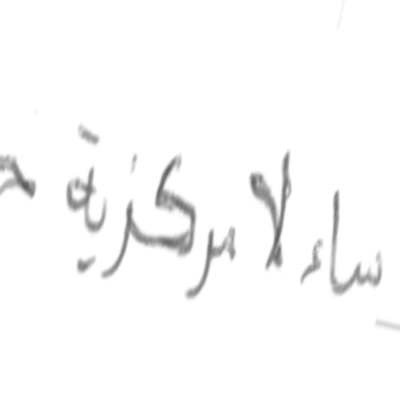 ساء لا مركزية